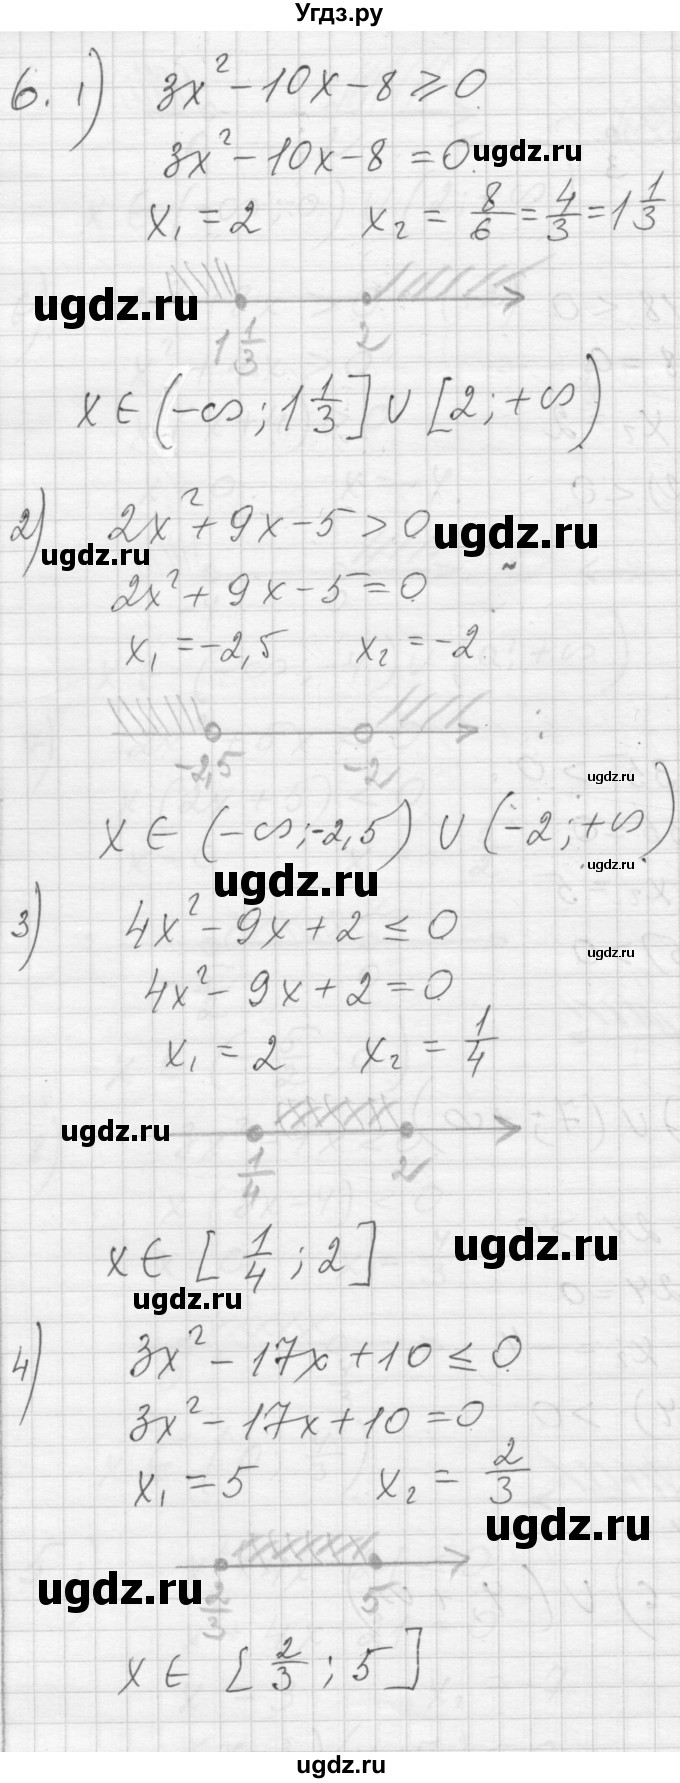 Угдз.ру
6. 1) 3x² - 10x - 8 ≥ 0
3x² - 10x - 8 = 0 ugdz.ru
x₁ = 2 x₂ = 8/6 = 4/3 = 1 1/3
ugdz.ru
1 1/3 2
x ∈ (-∞; 1 1/3] ∪ [2; +∞)
2) 2x² + 9x - 5 > 0 ugdz.ru
ugdz.ru
2x² + 9x - 5 = 0
x₁ = -2,5 x₂ = -2
-2,5 -2
ugdz.ru
x ∈ (-∞; -2,5) ∪ (-2; +∞)
ugdz.ru
ugdz.ru
3) 4x² - 9x + 2 ≤ 0
ugdz.ru
4x² - 9x + 2 = 0
x₁ = 2 x₂ = 1/4
ugdz.ru
1/4 2
x ∈ [1/4; 2] ugdz.ru
ugdz.ru
4) 3x² - 17x + 10 ≤ 0
3x² - 17x + 10 = 0
x₁ = 5 x₂ = 2/3
ugdz.ru
ugdz.ru
2/3 5
x ∈ [2/3; 5]
ugdz.ru